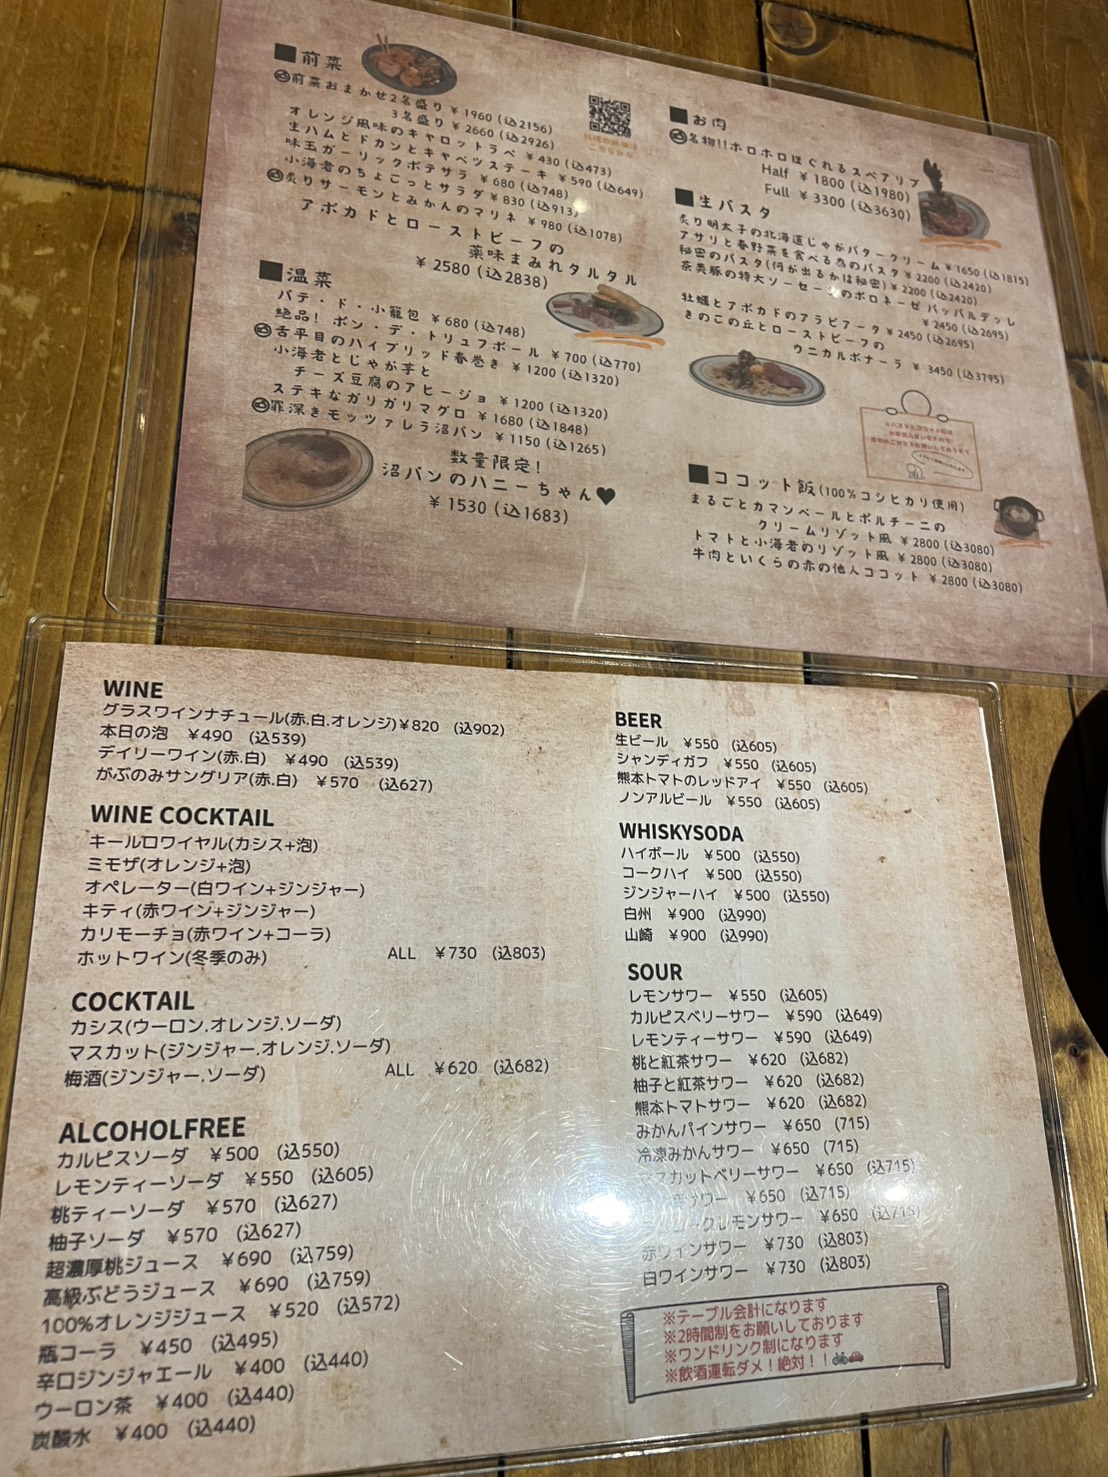 ■前菜
前菜おまかせ2名盛り ¥1960(込2156)
3名盛り ¥2660(込2926)
オレンジ風味のキャロットラペ ¥430(込473)
生ハムとドカンとキャベツステーキ ¥590(込649)
味玉ガーリックポテサラ ¥680(込748)
小海老のちょこっとサラダ ¥830(込913)
炙りサーモンとみかんのマリネ ¥980(込1078)
アボカドとローストビーフの
薬味まみれタルタル
¥2580(込2838)
■温菜
パテ・ド・小籠包 ¥680(込748)
絶品!ポン・デ・トリュフボール ¥700(込770)
舌平目のハイブリッド春巻き ¥1200(込1320)
小海老とじゃが芋と
チーズ豆腐のアヒージョ ¥1200(込1320)
ステキなガリガリマグロ ¥1680(込1848)
罪深きモッツァレラ沼パン ¥1150(込1265)
数量限定!
沼パンのハニーちゃん♥
¥1530(込1683)
■お肉
名物!!ホロホロほぐれるスペアリブ
Half ¥1800(込1980)
Full ¥3300(込3630)
■生パスタ
炙り明太子の北海道じゃがバタークリーム ¥1650(込1815)
アサリと春野菜を食べる為のパスタ ¥2200(込2420)
秘密のパスタ(何が出るかは秘密) ¥2200(込2420)
茶美豚の特大ソーセージのボロネーゼ パッパルデッレ
¥2450(込2695)
牡蠣とアボカドのアラビアータ ¥2450(込2695)
きのこの丘とローストビーフの
ウニカルボナーラ ¥3450(込3795)
■ココット飯(100%コシヒカリ使用)
まるごとカマンベールとポルチーニの
クリームリゾット風 ¥2800(込3080)
トマトと小海老のリゾット風 ¥2800(込3080)
牛肉といくらの赤の他人ココット ¥2800(込3080)
WINE
グラスワインナチュール(赤.白.オレンジ)¥820 (込902)
本日の泡 ¥490 (込539)
デイリーワイン(赤.白) ¥490 (込539)
がぶのみサングリア(赤.白) ¥570 (込627)
WINE COCKTAIL
キールロワイヤル(カシス+泡)
ミモザ(オレンジ+泡)
オペレーター(白ワイン+ジンジャー)
キティ(赤ワイン+ジンジャー)
カリモーチョ(赤ワイン+コーラ)
ホットワイン(冬季のみ) ALL ¥730 (込803)
COCKTAIL
カシス(ウーロン.オレンジ.ソーダ)
マスカット(ジンジャー.オレンジ.ソーダ)
梅酒(ジンジャー.ソーダ) ALL ¥620 (込682)
ALCOHOLFREE
カルピスソーダ ¥500 (込550)
レモンティーソーダ ¥550 (込605)
桃ティーソーダ ¥570 (込627)
柚子ソーダ ¥570 (込627)
超濃厚桃ジュース ¥690 (込759)
高級ぶどうジュース ¥690 (込759)
100%オレンジジュース ¥520 (込572)
瓶コーラ ¥450 (込495)
辛口ジンジャエール ¥400 (込440)
ウーロン茶 ¥400 (込440)
炭酸水 ¥400 (込440)
BEER
生ビール ¥550 (込605)
シャンディガフ ¥550 (込605)
熊本トマトのレッドアイ ¥550 (込605)
ノンアルビール ¥550 (込605)
WHISKYSODA
ハイボール ¥500 (込550)
コークハイ ¥500 (込550)
ジンジャーハイ ¥500 (込550)
白州 ¥900 (込990)
山崎 ¥900 (込990)
SOUR
レモンサワー ¥550 (込605)
カルピスベリーサワー ¥590 (込649)
レモンティーサワー ¥590 (込649)
桃と紅茶サワー ¥620 (込682)
柚子と紅茶サワー ¥620 (込682)
熊本トマトサワー ¥620 (込682)
みかんパインサワー ¥650 (715)
冷凍みかんサワー ¥650 (715)
マスカットベリーサワー ¥650 (込715)
サワー ¥650 (込715)
レモンサワー ¥650 (込715)
赤ワインサワー ¥730 (込803)
白ワインサワー ¥730 (込803)
※テーブル会計になります
※2時間制をお願いしております
※ワンドリンク制になります
※飲酒運転ダメ!絶対!!